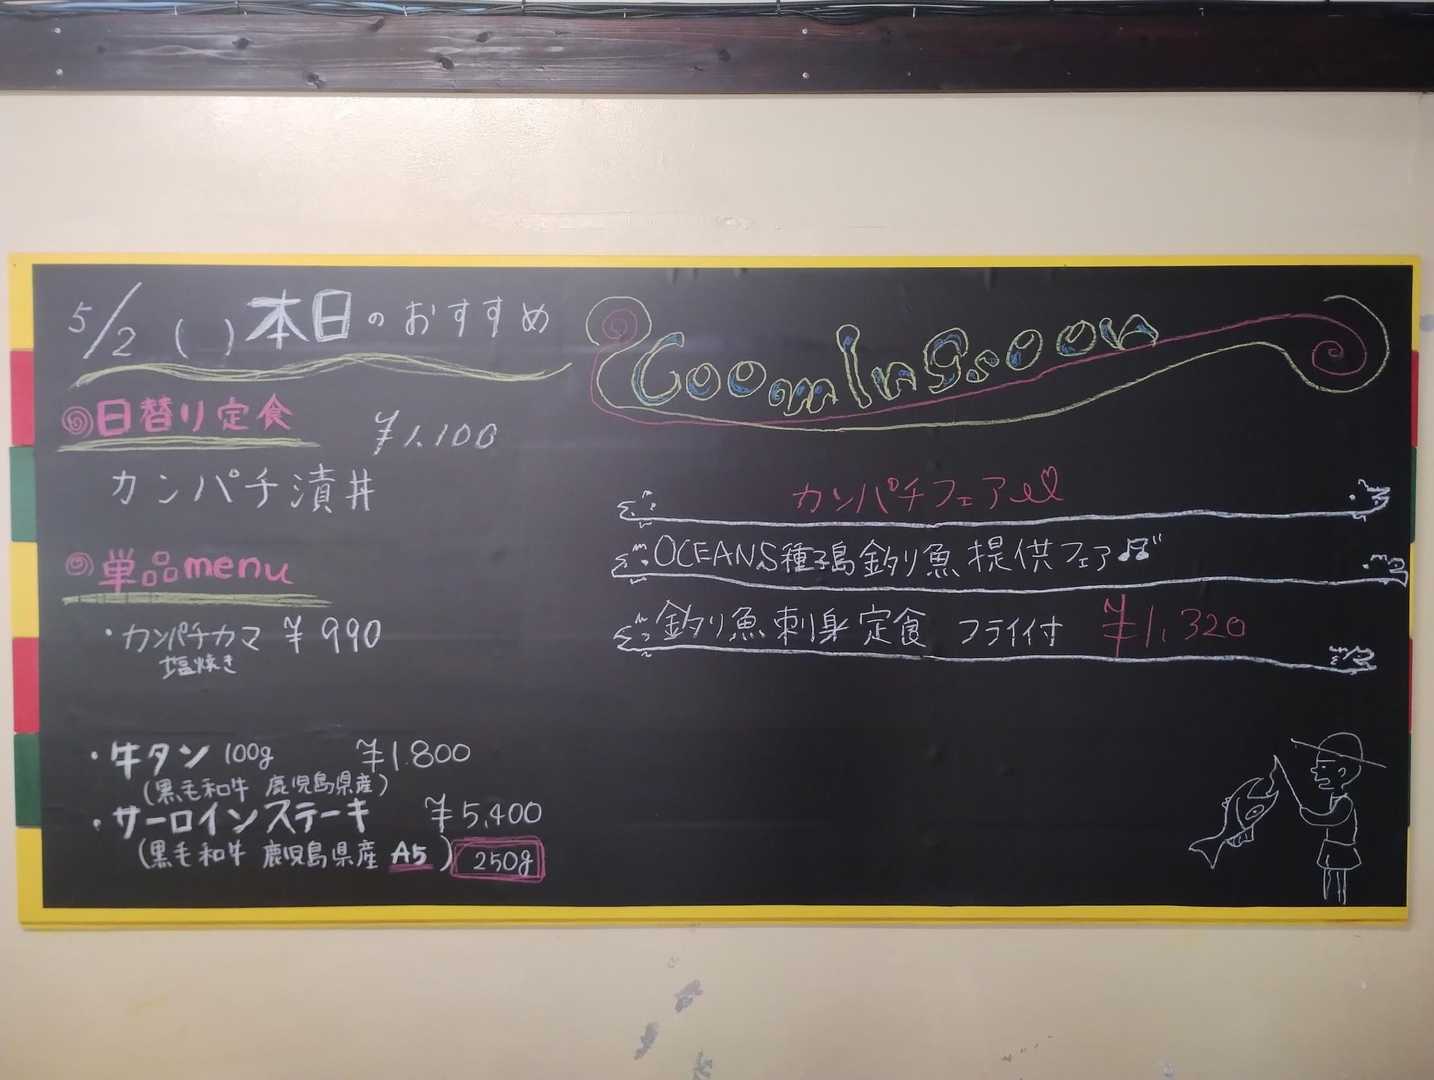 5/2 ( ) 本日のおすすめ
日替り定食 ¥1,100
カンパチ漬丼
単品menu
・カンパチカマ ¥990
塩焼き
・牛タン 100g ¥1.800
(黒毛和牛 鹿児島県産)
・サーロインステーキ ¥5,400
(黒毛和牛 鹿児島県産 A5) 250g
CoomIngsoon
カンパチフェア
OCEANS種子島釣り魚提供フェア♫
釣り魚刺身定食 フライ付 ¥1,320